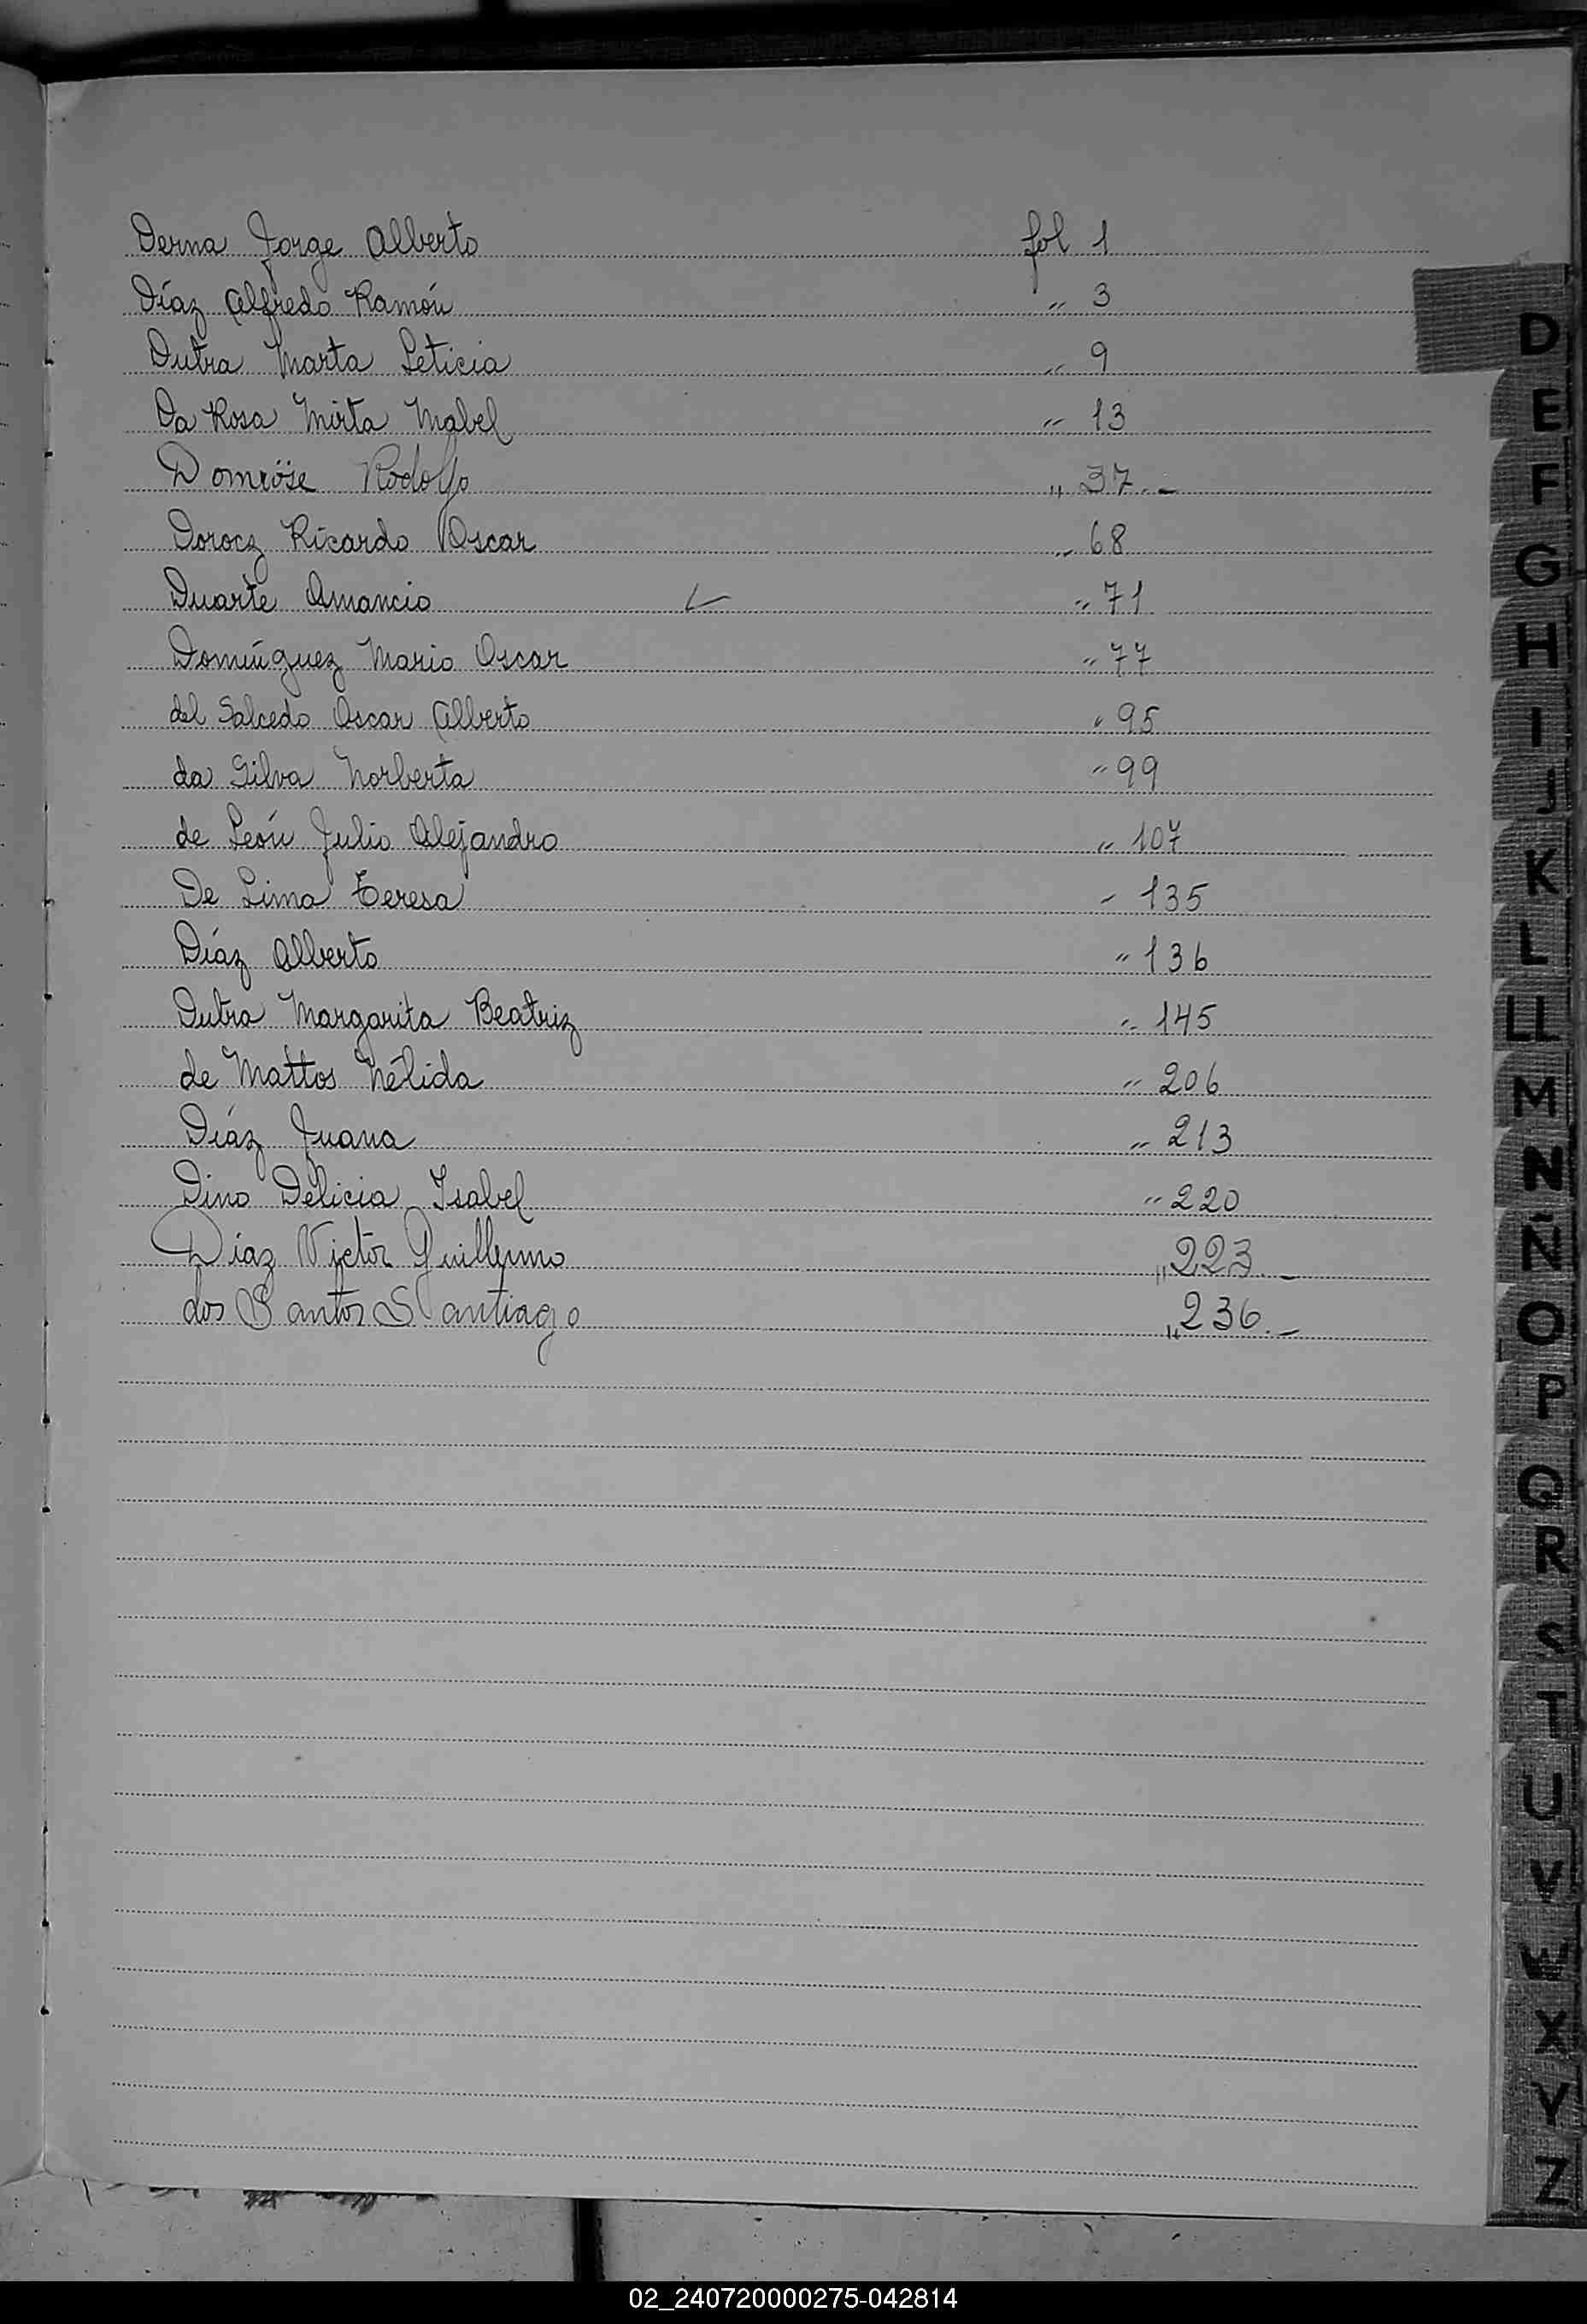 Derna Jorge Alberto fol 1
Díaz Alfredo Ramón " 3
Dutra Marta Leticia " 9
Da Rosa Mirta Mabel " 13
Domröse Rodolfo " 37.-
Dorocz Ricardo Oscar " 68
Duarte Amancio " 71
Domínguez Mario Oscar " 77
del Salcedo Oscar Alberto " 95
da Silva Norberta " 99
de León Julio Alejandro " 107
De Lima Teresa " 135
Díaz Alberto " 136
Dutra Margarita Beatriz " 145
de Mattos Nélida " 206
Díaz Juana " 213
Dino Délicia Isabel " 220
Díaz Victor Guillermo " 223.-
dos Santos Santiago " 236.-
D
E
F
G
H
I
J
K
L
LL
M
N
Ñ
O
P
Q
R
S
T
U
V
W
X
Y
Z
02_240720000275-042814